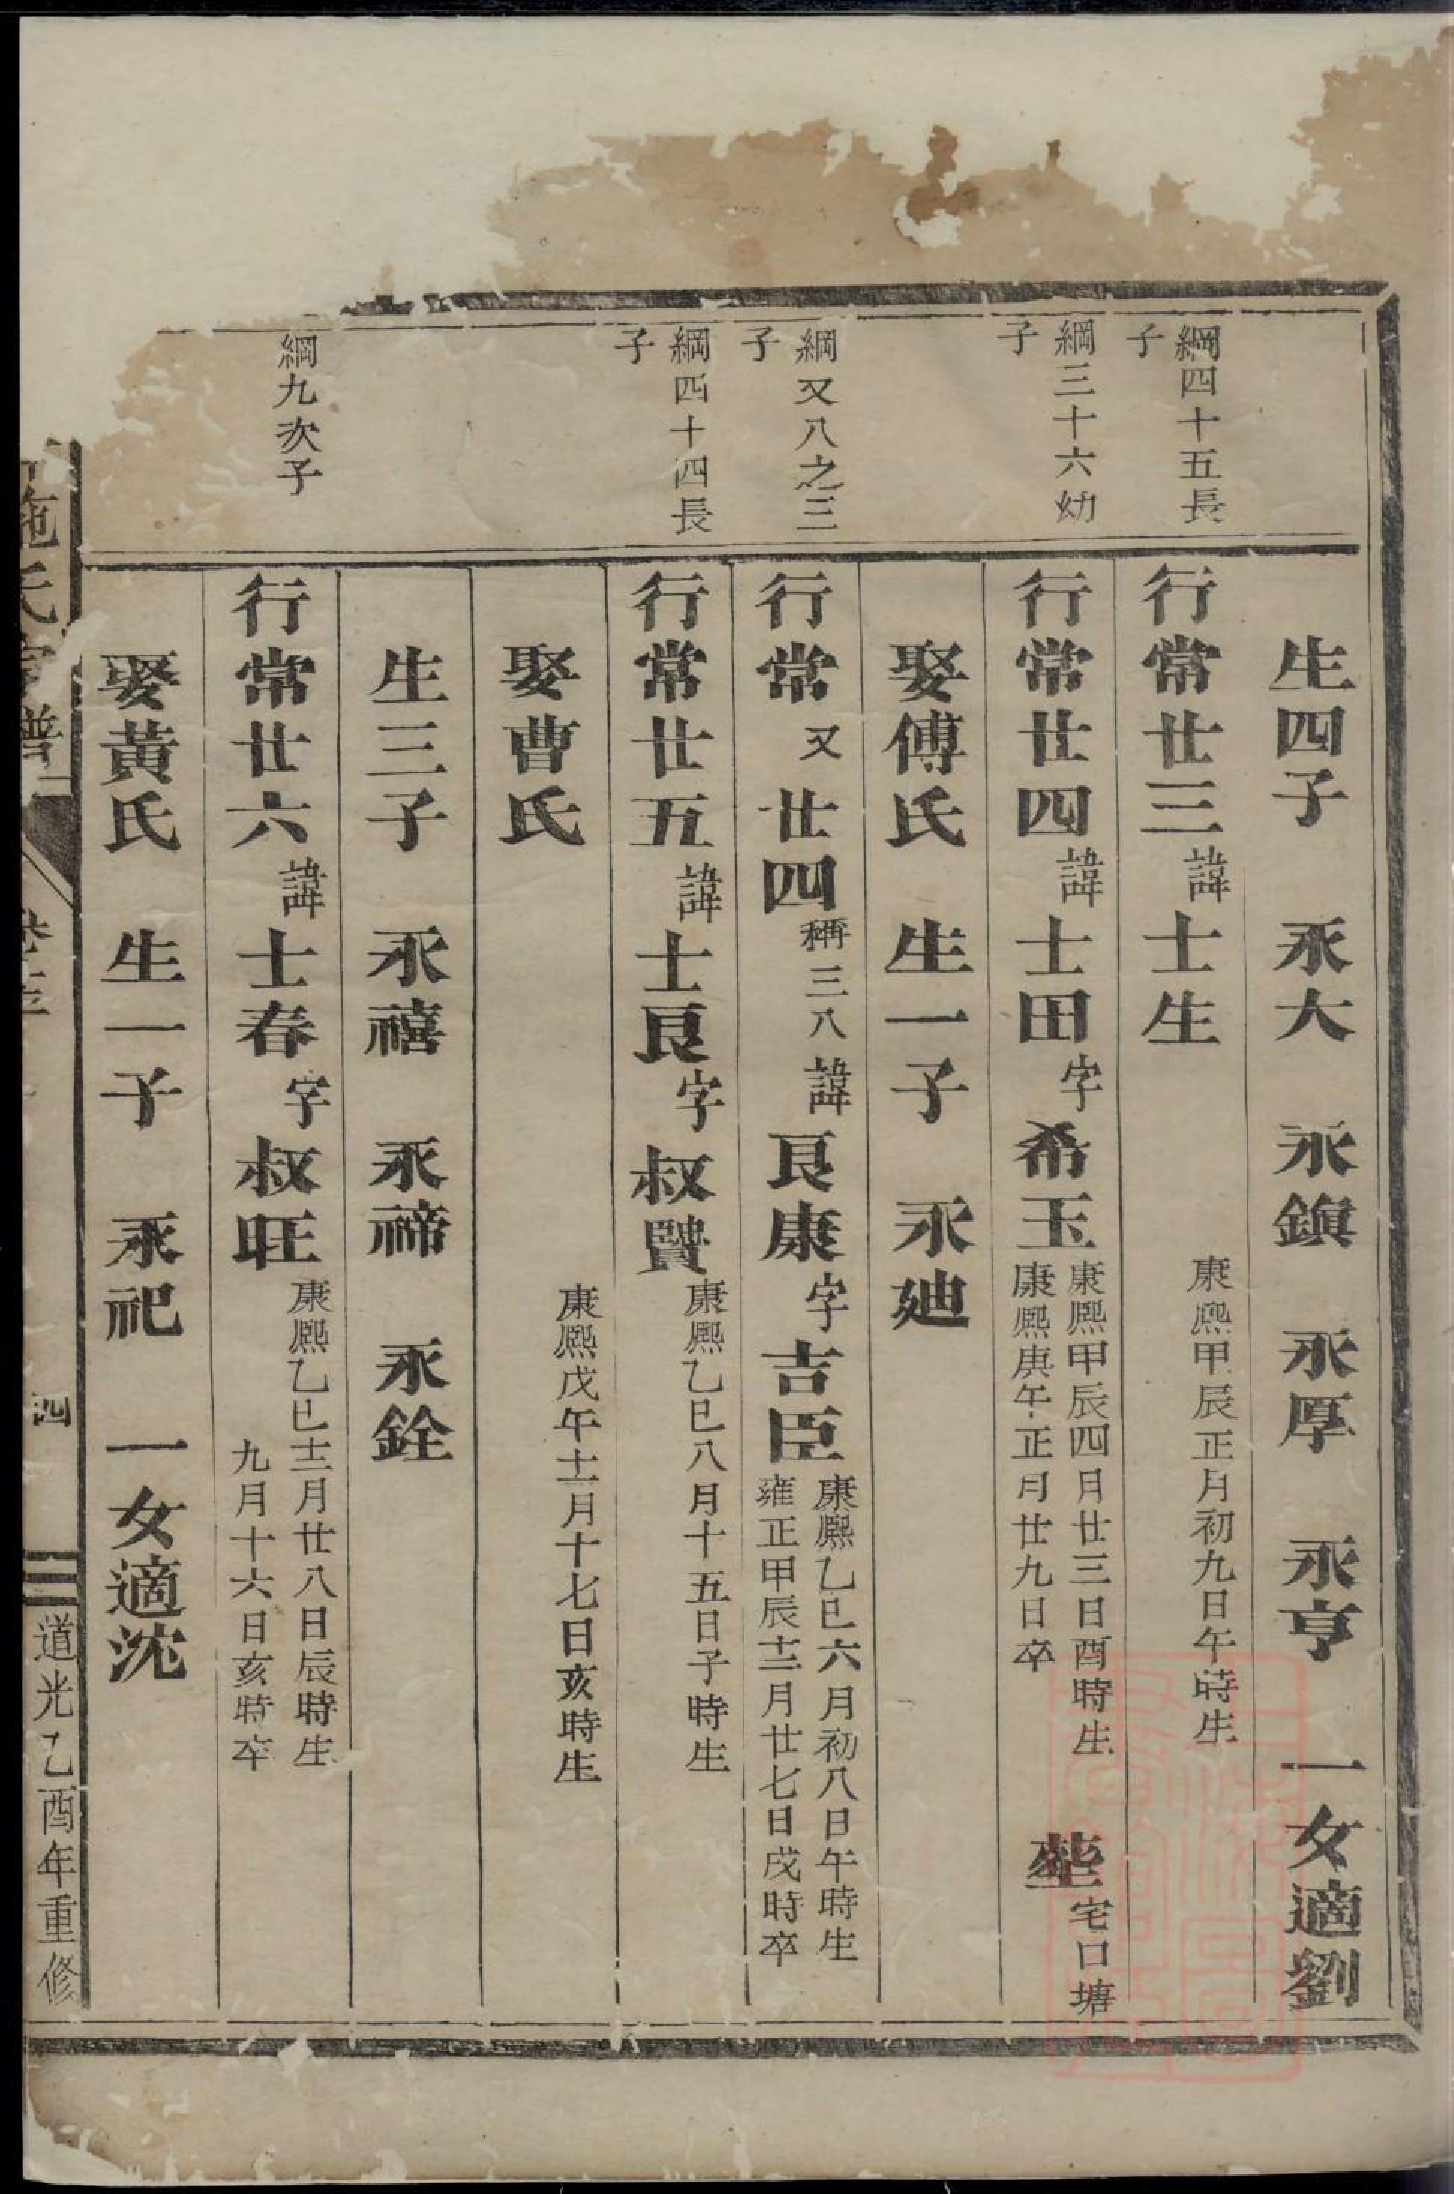 生四子　永大　永鎭　永厚　永亨　一女適劉
綱四十五長
子
行常廿三諱士生
康熈甲辰正月初九日午時生
綱三十六幼
子
行常廿四諱士田字希玉
康熈甲辰四月廿三日酉時生
康熈庚午正月廿九日卒
塟宅口塘
娶傅氏　生一子　永廸
綱又八之三
子
行常又廿四稱三八諱良康字吉臣
康熈乙巳六月初八日午時生
雍正甲辰十二月廿七日戌時卒
綱四十四長
子
行常廿五諱士良字叔賢
康熈乙巳八月十五日子時生
娶曹氏
康熈戊午十一月十七日亥時生
生三子　永禧　永禘　永銓
綱九次子
行常廿六諱士春字叔旺
康熈乙巳十二月廿八日辰時生
九月十六日亥時卒
娶黄氏　生一子　永祀　一女適沈
施氏宗譜
四
道光乙酉年重修